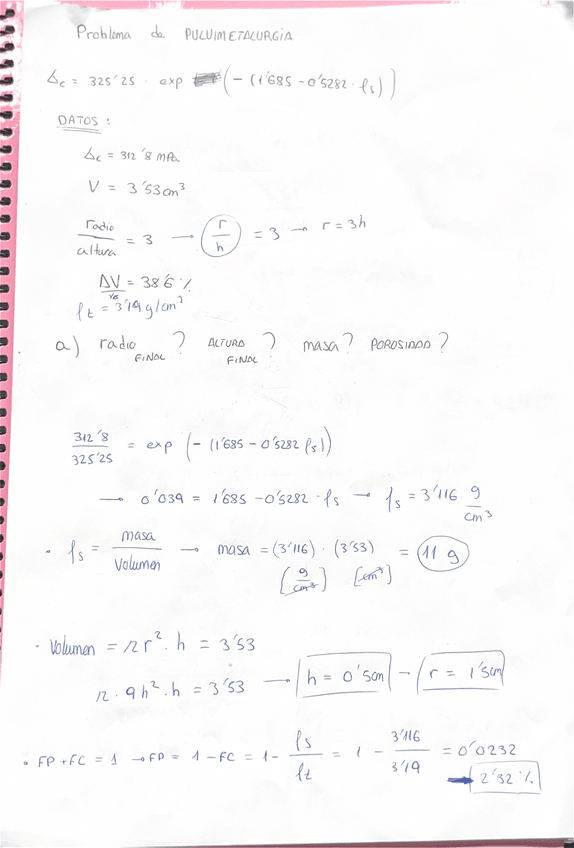 Problema de PULVIMETALURGIA
Δc = 325'25 · exp (- (1'685 - 0'5282 · ρs))
DATOS :
Δc = 312'8 MPa
V = 3'53 cm³
radio / altura = 3 → r/h = 3 → r = 3h
ΔV/V₀ = 38'6 %
ρt = 3'19 g/cm³
a) radio FINAL ? ALTURA FINAL ? masa ? POROSIDAD ?
312'8 / 325'25 = exp (- (1'685 - 0'5282 ρs))
→ 0'039 = 1'685 - 0'5282 · ρs → ρs = 3'116 g/cm³
· ρs = masa / volumen → masa = (3'116) · (3'53) = 11 g
[g/cm³] [cm³]
· Volumen = π r² · h = 3'53
π · 9h² · h = 3'53 → h = 0'5cm - r = 1'5cm
· FP + FC = 1 → FP = 1 - FC = 1 - ρs/ρt = 1 - 3'116/3'19 = 0'0232
→ 2'32 %